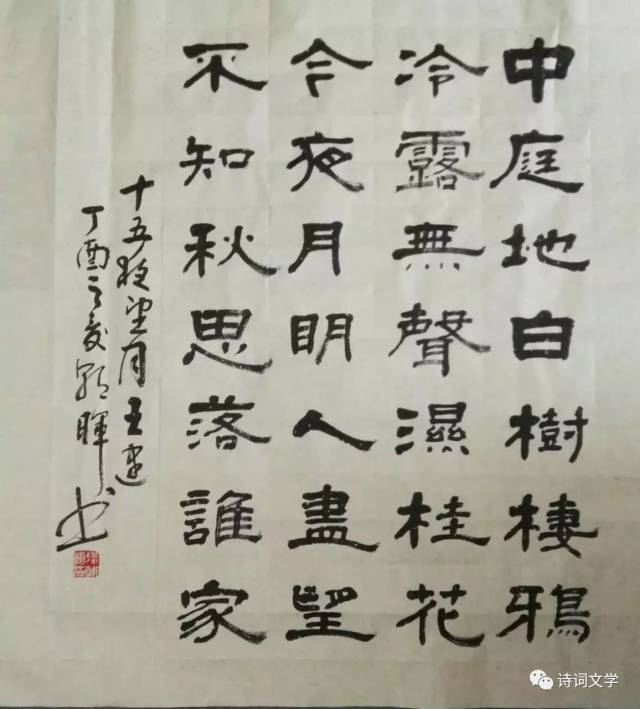 中庭地白樹棲鴉
冷露無聲濕桂花
今夜月明人盡望
不知秋思落誰家
十五夜望月王建
丁酉之夏暉书
诗词文学